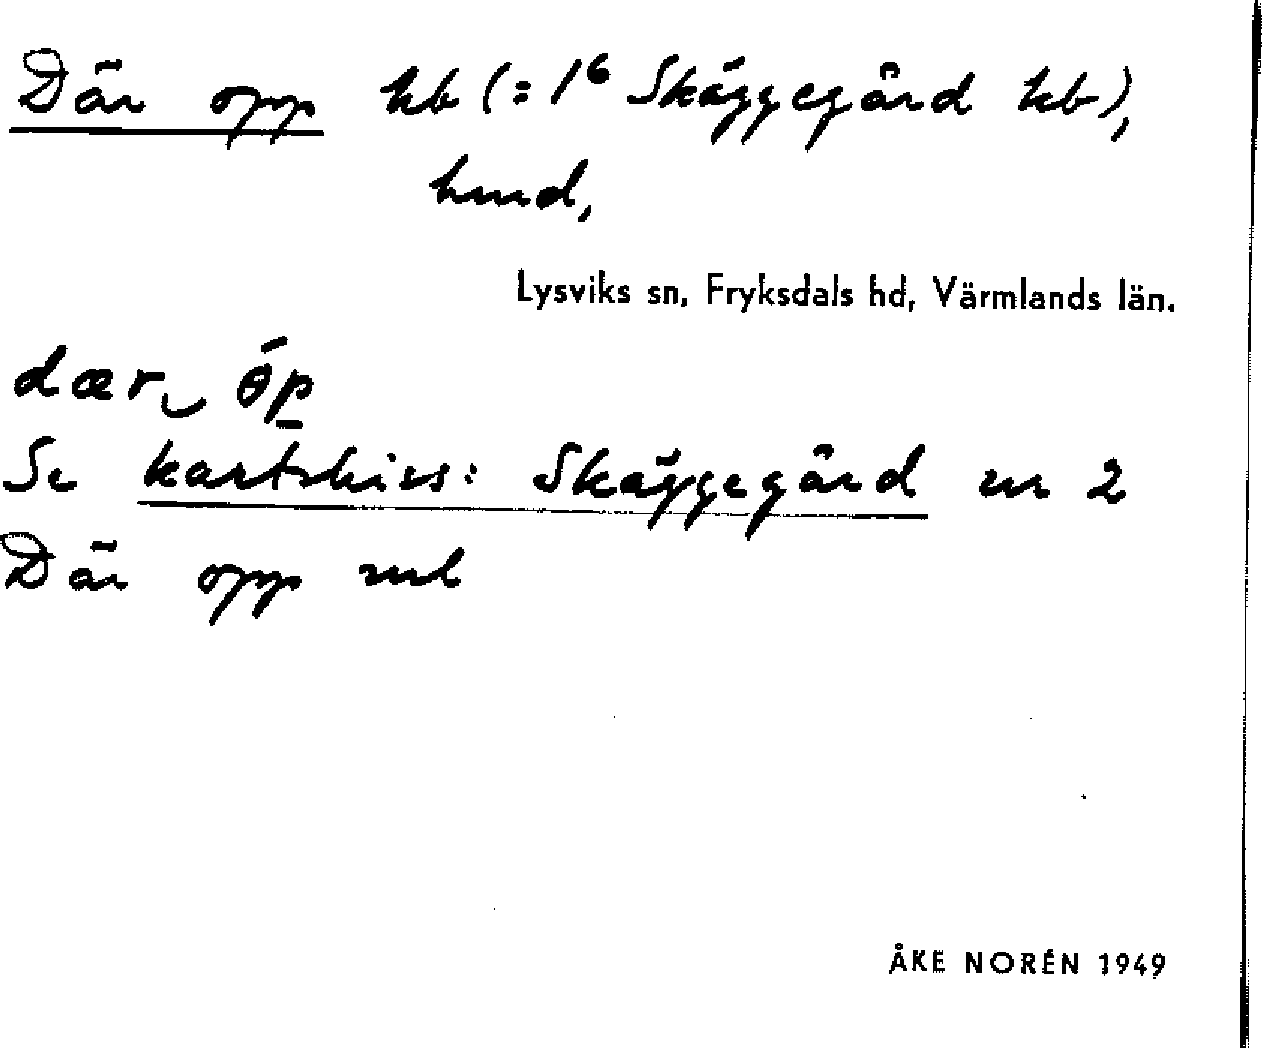 Där opp hb (: 1⁶ Skäggegård hb),
hmd,
Lysviks sn, Fryksdals hd, Värmlands län.
dær öp
Se kartskiss: Skäggegård nr 2
Där opp
ÅKE NORÉN 1949